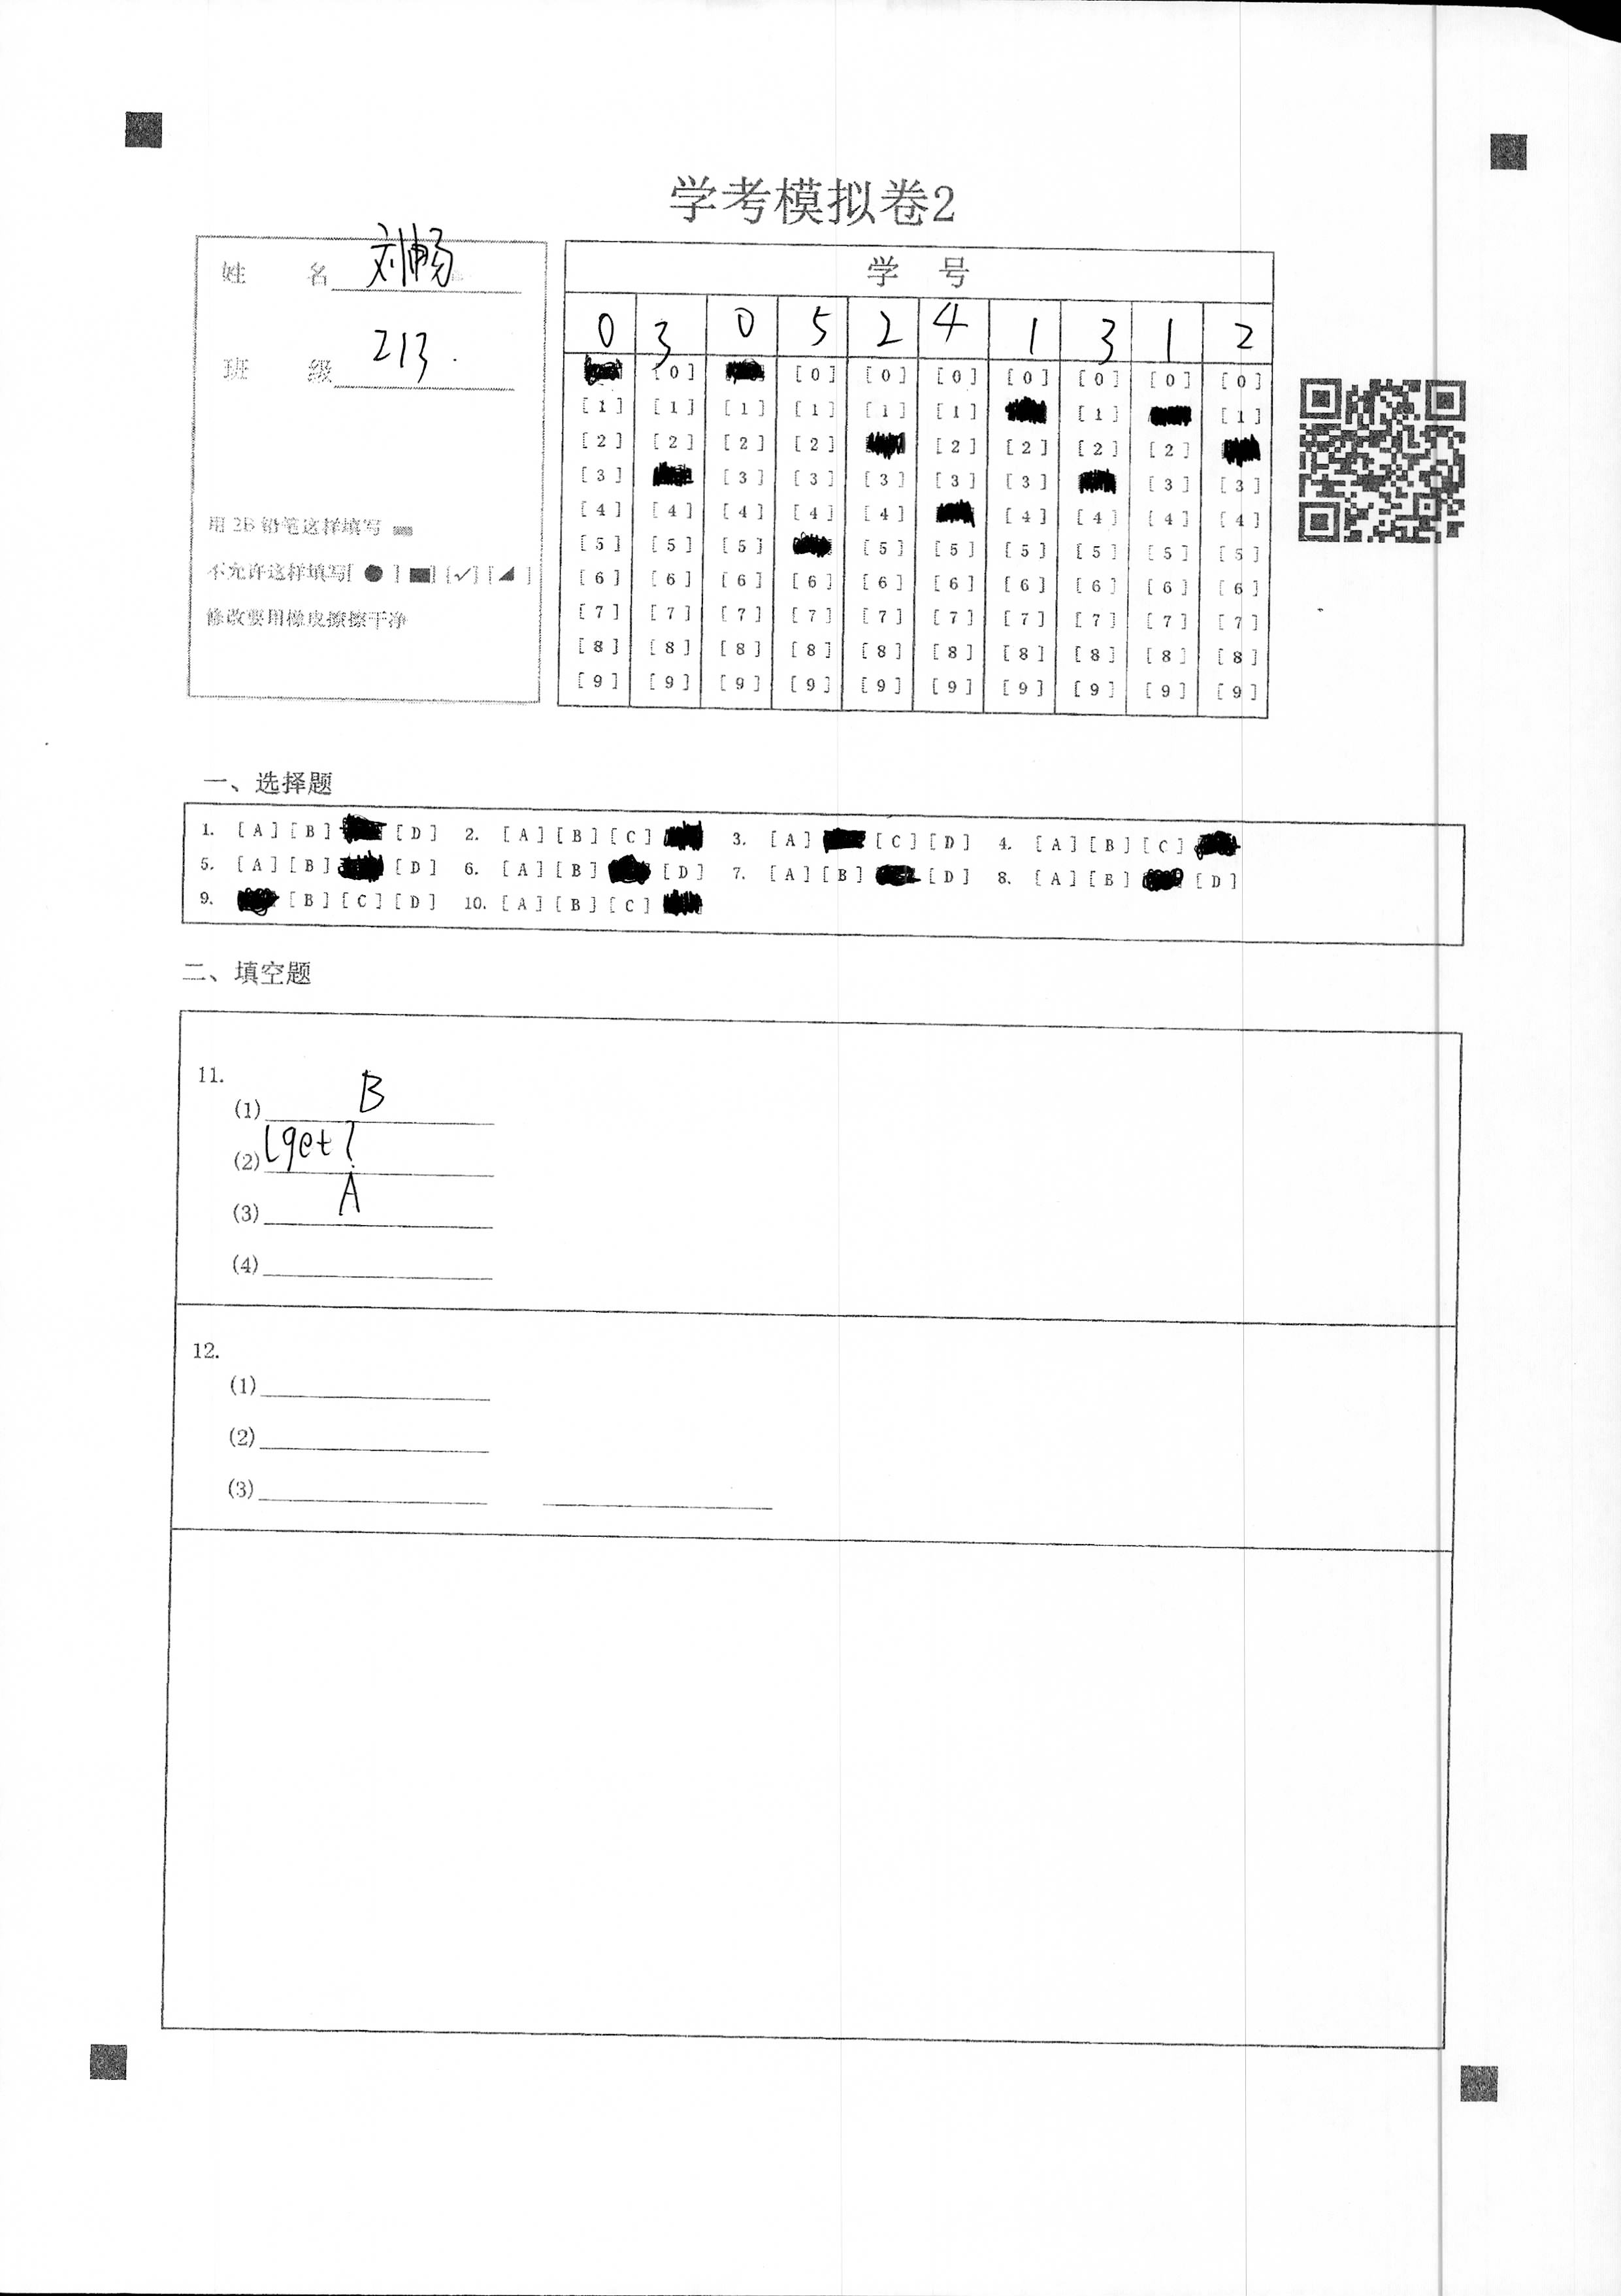 学考模拟卷2
姓 名 刘畅
班 级 213.
用 2B 铅笔这样填写
不允许这样填写[ ● ] [■] [✓] [◢ ]
修改要用橡皮擦擦干净
学 号
0 3 0 5 2 4 1 3 1 2
[0] [0] [0] [0] [0] [0] [0] [0]
[1] [1] [1] [1] [1] [1] [1] [1]
[2] [2] [2] [2] [2] [2] [2] [2]
[3] [3] [3] [3] [3] [3] [3] [3]
[4] [4] [4] [4] [4] [4] [4] [4] [4]
[5] [5] [5] [5] [5] [5] [5] [5] [5]
[6] [6] [6] [6] [6] [6] [6] [6] [6] [6]
[7] [7] [7] [7] [7] [7] [7] [7] [7] [7]
[8] [8] [8] [8] [8] [8] [8] [8] [8] [8]
[9] [9] [9] [9] [9] [9] [9] [9] [9] [9]
一、选择题
1. [A] [B] [D] 2. [A] [B] [C] 3. [A] [C] [D] 4. [A] [B] [C]
5. [A] [B] [D] 6. [A] [B] [D] 7. [A] [B] [D] 8. [A] [B] [D]
9. [B] [C] [D] 10. [A] [B] [C]
二、填空题
11.
(1) B
(2) (get ?
(3) A
(4)
12.
(1)
(2)
(3)